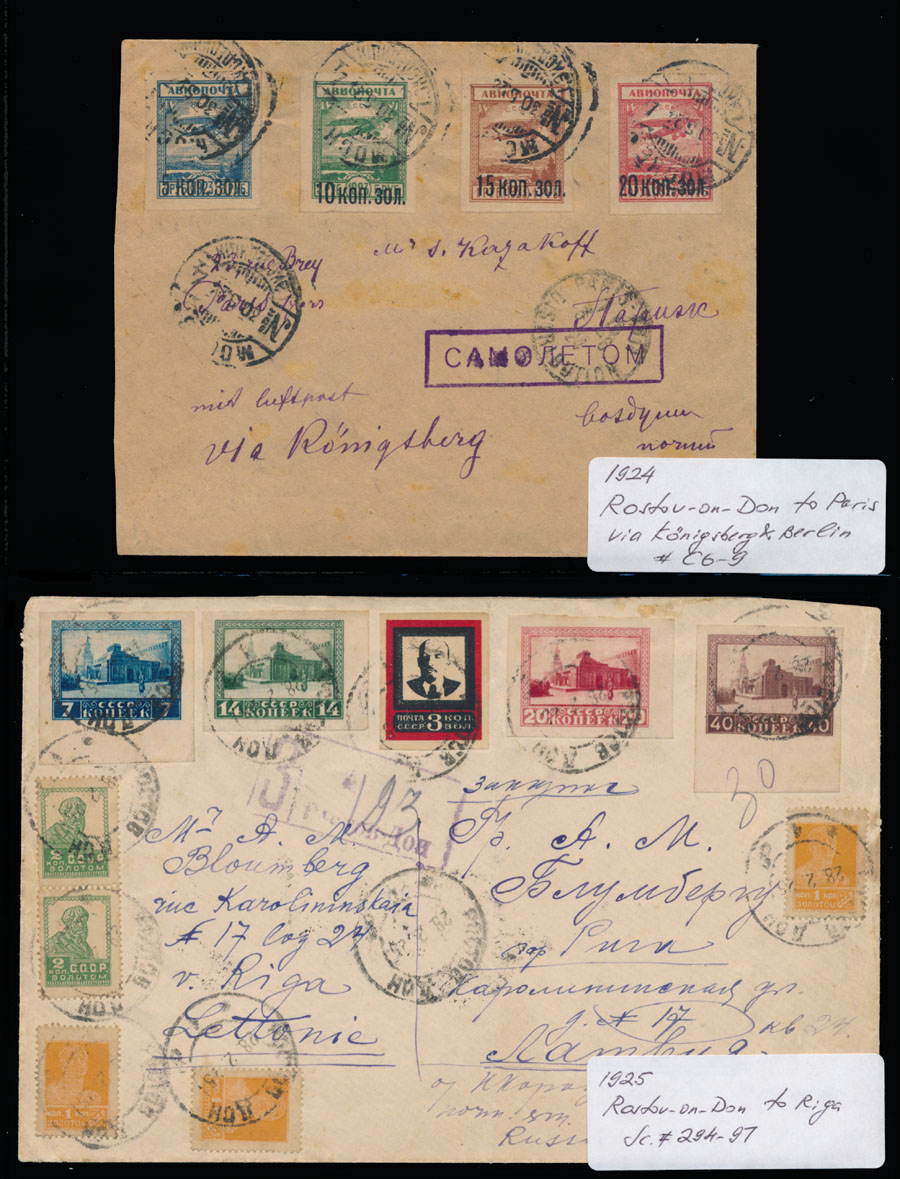 АВИОПОЧТА
АВИОПОЧТА
АВИОПОЧТА
АВИОПОЧТА
5 КОП. ЗОЛ.
10 КОП. ЗОЛ.
15 КОП. ЗОЛ.
20 КОП. ЗОЛ.
Mr S. Kazakoff
rue Brey
Paris
Париж
САМОЛЕТОМ
mit luftpost
via Königsberg
почтой
1924
Rostov-on-Don to Paris
via Königsberg & Berlin
# C6-9
СССР
7 КОПЕЕК 7
СССР
14 КОПЕЕК 14
ПОЧТА 3 КОП.
СССР ЗОЛ.
СССР
20 КОПЕЕК 20
СССР
40 КОПЕЕК 40
30
З
193
Заказное
2 С.С.С.Р.
КОП. ЗОЛОТОМ
2 С.С.С.Р.
КОП. ЗОЛОТОМ
РОСТОВ ДОН
28 2
Mr A. M.
Bloumberg
rue Karolininskaia
# 17 log 24
v. Riga
Lettonie
Гр. А. М.
Блумбергу
гор Рига
Каролининская ул.
д. # 17 кв 24
Латвия
Russ
1925
Rostov-on-Don to Riga
Sc. # 294-97